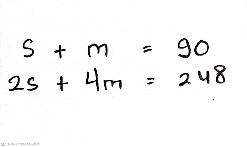 S + m = 90
2s + 4m = 248